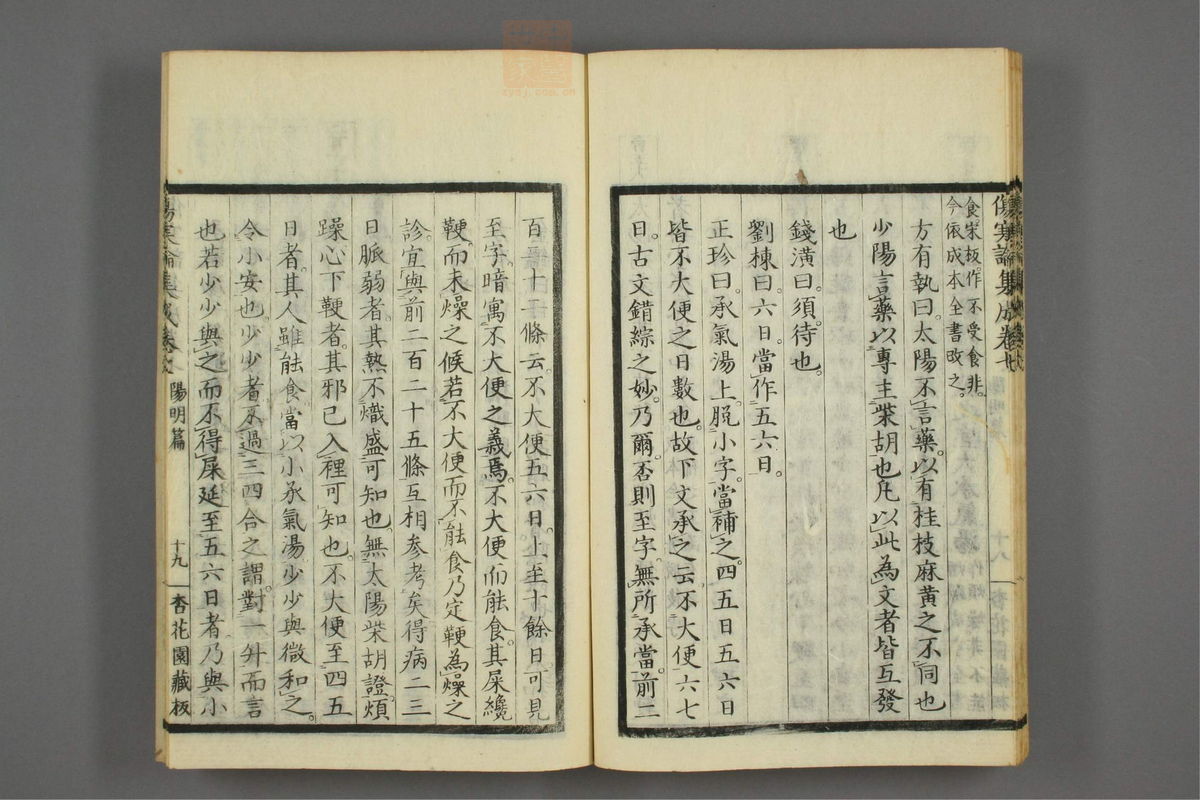 食宋板作不受食非。
今依成本全書改之。
方有執曰。太陽不言藥。以有桂枝麻黃之不同也
少陽言藥以專主柴胡也凡以此為文者皆互發
也
錢潢曰。須待也。
劉棟曰。六日。當作五六日。
正珍曰。承氣湯上。脫小字。當補之。四五日五六日
皆不大便之日數也。故下文承之云不大便六七
日。古文錯綜之妙。乃爾。否則至字。無所承當。前二
百十條云。不大便五六日。上至十餘日。可見
至字。暗寓不大便之義焉。不大便而能食。其屎纔
鞕。而未燥之候。若不大便而不能食乃定鞕為燥之
診。宜與前二百二十五條互相參考矣得病二三
日脈弱者。其熱不熾盛可知也。無太陽柴胡證。煩
躁心下鞕者。其邪已入裡可知也。不大便至四五
日者。其人雖能食當以小承氣湯少少與微和之。
令小安也。少少者。不過三四合之謂。對一升而言
也若少少與之而不得屎延至五六日者乃與小
傷寒論集成卷七
陽明篇
十九
杏花園藏板
zysj.com.cn